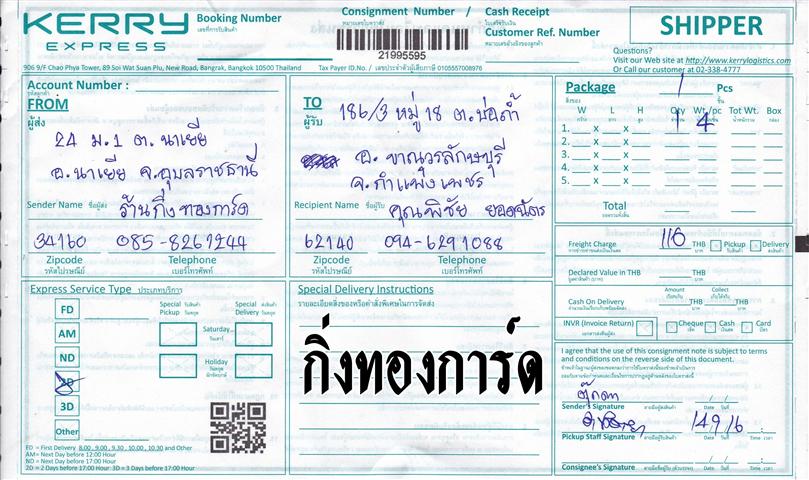 KERRY
EXPRESS
Booking Number
เลขที่การรับสินค้า
Consignment Number / Cash Receipt
หมายเลขใบตราส่ง ใบเสร็จรับเงิน
21995595
Customer Ref. Number
หมายเลขอ้างอิงของลูกค้า
SHIPPER
Questions?
Visit our Web site at http://www.kerrylogistics.com
Or Call our customer at 02-338-4777
906 9/F Chao Phya Tower, 89 Soi Wat Suan Plu, New Road, Bangrak, Bangkok 10500 Thailand
Tax Payer ID.No. / เลขประจำตัวผู้เสียภาษี 0105557008976
Account Number :
รหัสลูกค้า
FROM
ผู้ส่ง
24 ม.1 ต.นาเยีย
อ.นาเยีย จ.อุบลราชธานี
Sender Name ชื่อผู้ส่ง ร้านกิ่งทองการ์ด
34160 085-8267244
Zipcode Telephone
รหัสไปรษณีย์ เบอร์โทรศัพท์
TO
ผู้รับ
186/3 หมู่ 18 ต.บ่อถ้ำ
อ.ขาณุวรลักษบุรี
จ.กำแพงเพชร
Recipient Name ชื่อผู้รับ คุณพิชัย
62140 094-6291088
Zipcode Telephone
รหัสไปรษณีย์ เบอร์โทรศัพท์
Package 1 Pcs
สิ่งของ ชิ้น
W L H Qty Wt./pc Tot Wt. Box
1. X X 1 4
2. X X
3. X X
4. X X
5. X X
Total
Freight Charge 116 THB Pickup Delivery
Declared Value in THB THB
Amount Collect
Cash On Delivery THB
INVR (Invoice Return) Cheque Cash Card
Express Service Type ประเภทบริการ
FD
AM
ND
2D
3D
Other
Special Pickup
Special Delivery
Saturday
วันเสาร์
Holiday
วันหยุด
FD = First Delivery 8.00 , 9.00 , 9.30 , 10.00 , 10.30 and Other
AM= Next Day before 12:00 Hour
ND= Next Day before 17:00 Hour
2D = 2 Days before 17:00 Hour 3D = 3 Days before 17:00 Hour
Special Delivery Instructions
รายละเอียดสิ่งของหรือคำสั่งพิเศษในการจัดส่ง
กิ่งทองการ์ด
I agree that the use of this consignment note is subject to terms
and conditions on the reverse side of this document.
ตุ๊กตา
Sender's Signature ลายมือผู้ส่งสินค้า Date วันที่
14 9 16
Pickup Staff Signature Date วันที่ Time เวลา
Consignee's Signature Date วันที่ Time เวลา